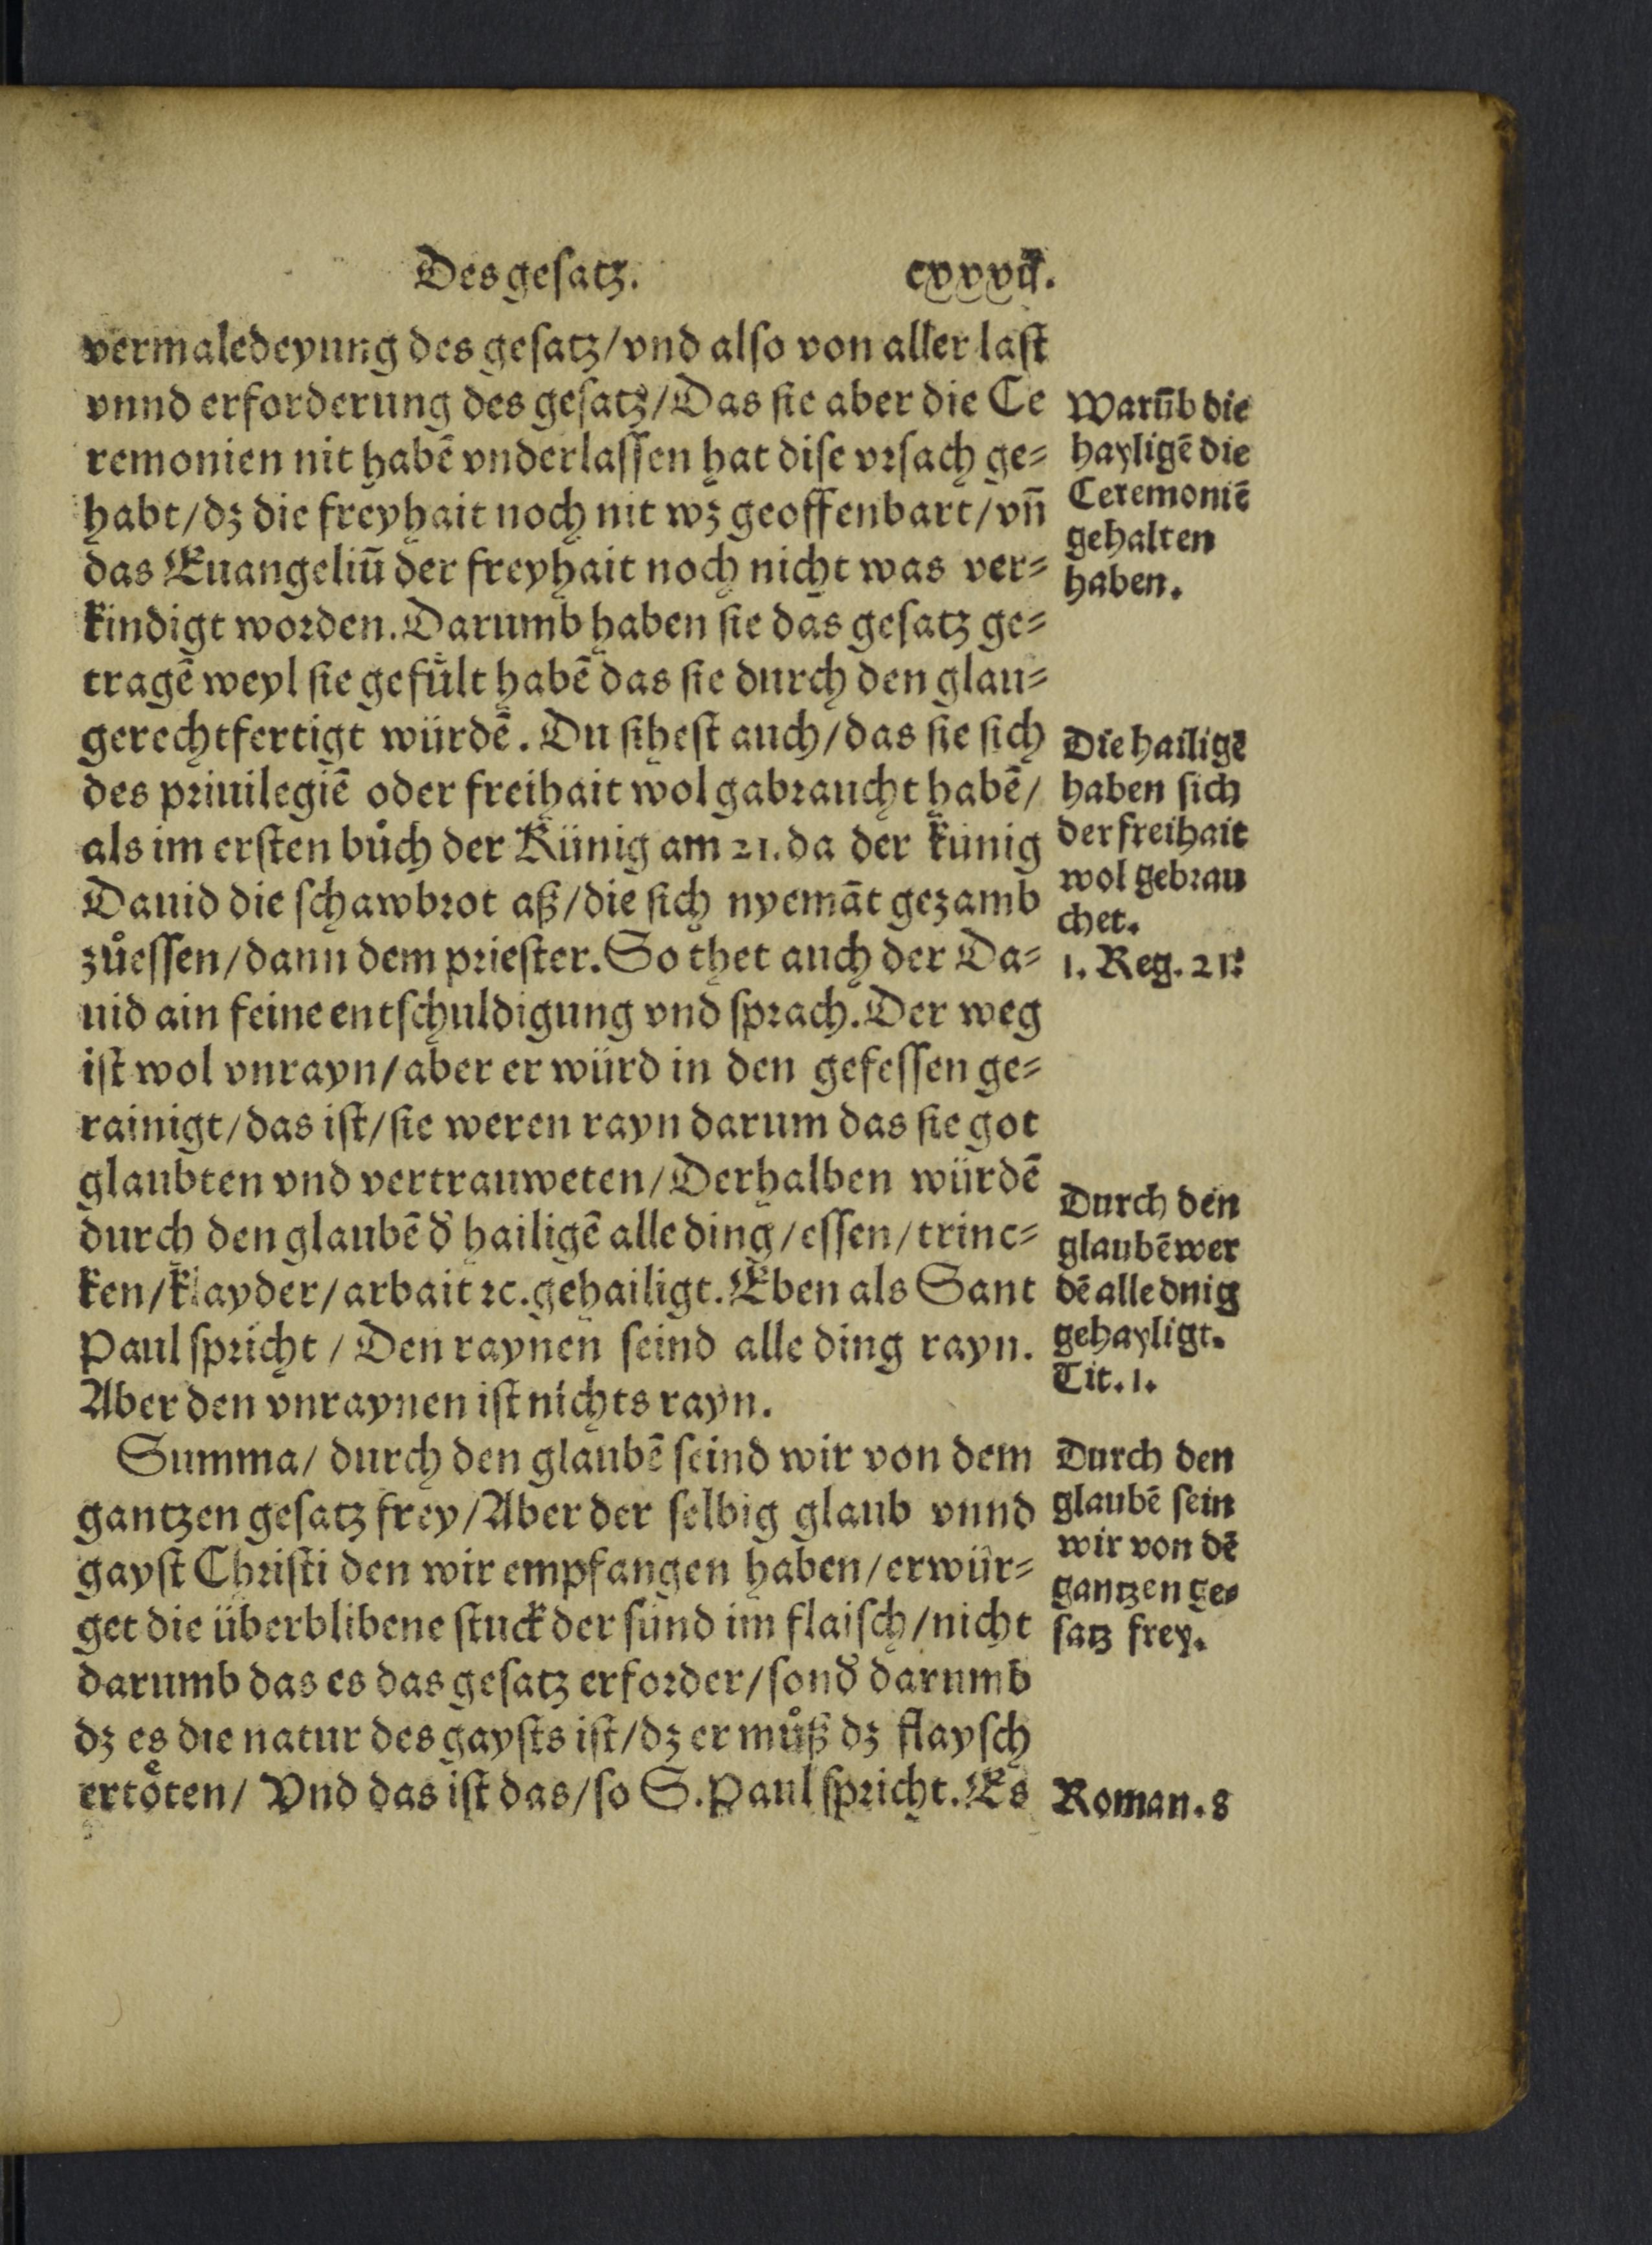 Des gesatz. cxxxvij.
vermaledeyung des gesatz/vnd also von aller last
vnnd erforderung des gesatz/Das sie aber die Ce
remonien nit habē vnderlassen hat dise vrsach ge⸗
habt/dz die freyhait noch nit wz geoffenbart/vn̄
das Euangeliū der freyhait noch nicht was ver⸗
kindigt worden. Darumb haben sie das gesatz ge⸗
tragē weyl sie gefült habē das sie durch den glau⸗
gerechtfertigt würdē. Du sihest auch/das sie sich
des priuilegiē oder freihait wol gabraucht habē/
als im ersten bůch der Künig am 21. da der künig
Dauid die schawbrot aß/die sich nyemāt gezamb
zůessen/dann dem priester. So thet auch der Da⸗
uid ain feine entschuldigung vnd sprach. Der weg
ist wol vnrayn/aber er würd in den gefessen ge⸗
rainigt/das ist/sie weren rayn darum das sie got
glaubten vnd vertrauweten/Derhalben würdē
durch den glaubē d' hailigē alle ding/essen/trinc⸗
ken/klayder/arbait ꝛc. gehailigt. Eben als Sant
Paul spricht/Den raynen seind alle ding rayn.
Aber den vnraynen ist nichts rayn.
Summa/durch den glaubē seind wir von dem
gantzen gesatz frey/Aber der selbig glaub vnnd
gayst Christi den wir empfangen haben/erwür⸗
get die überblibene stuck der sünd im flaisch/nicht
darumb das es das gesatz erforder/sond' darumb
dz es die natur des gaysts ist/dz er můß dz flaysch
ertoͤten/Vnd das ist das/so S. Paul spricht. Es
Warūb die
hayligē die
Ceremoniē
gehalten
haben.
Die hailigē
haben sich
der freihait
wol gebrau
chet.
1. Reg. 21.
Durch den
glaubē wer
dē alle dnig
gehayligt.
Tit. 1.
Durch den
glaubē sein
wir von dē
gantzen ge⸗
satz frey.
Roman. 8